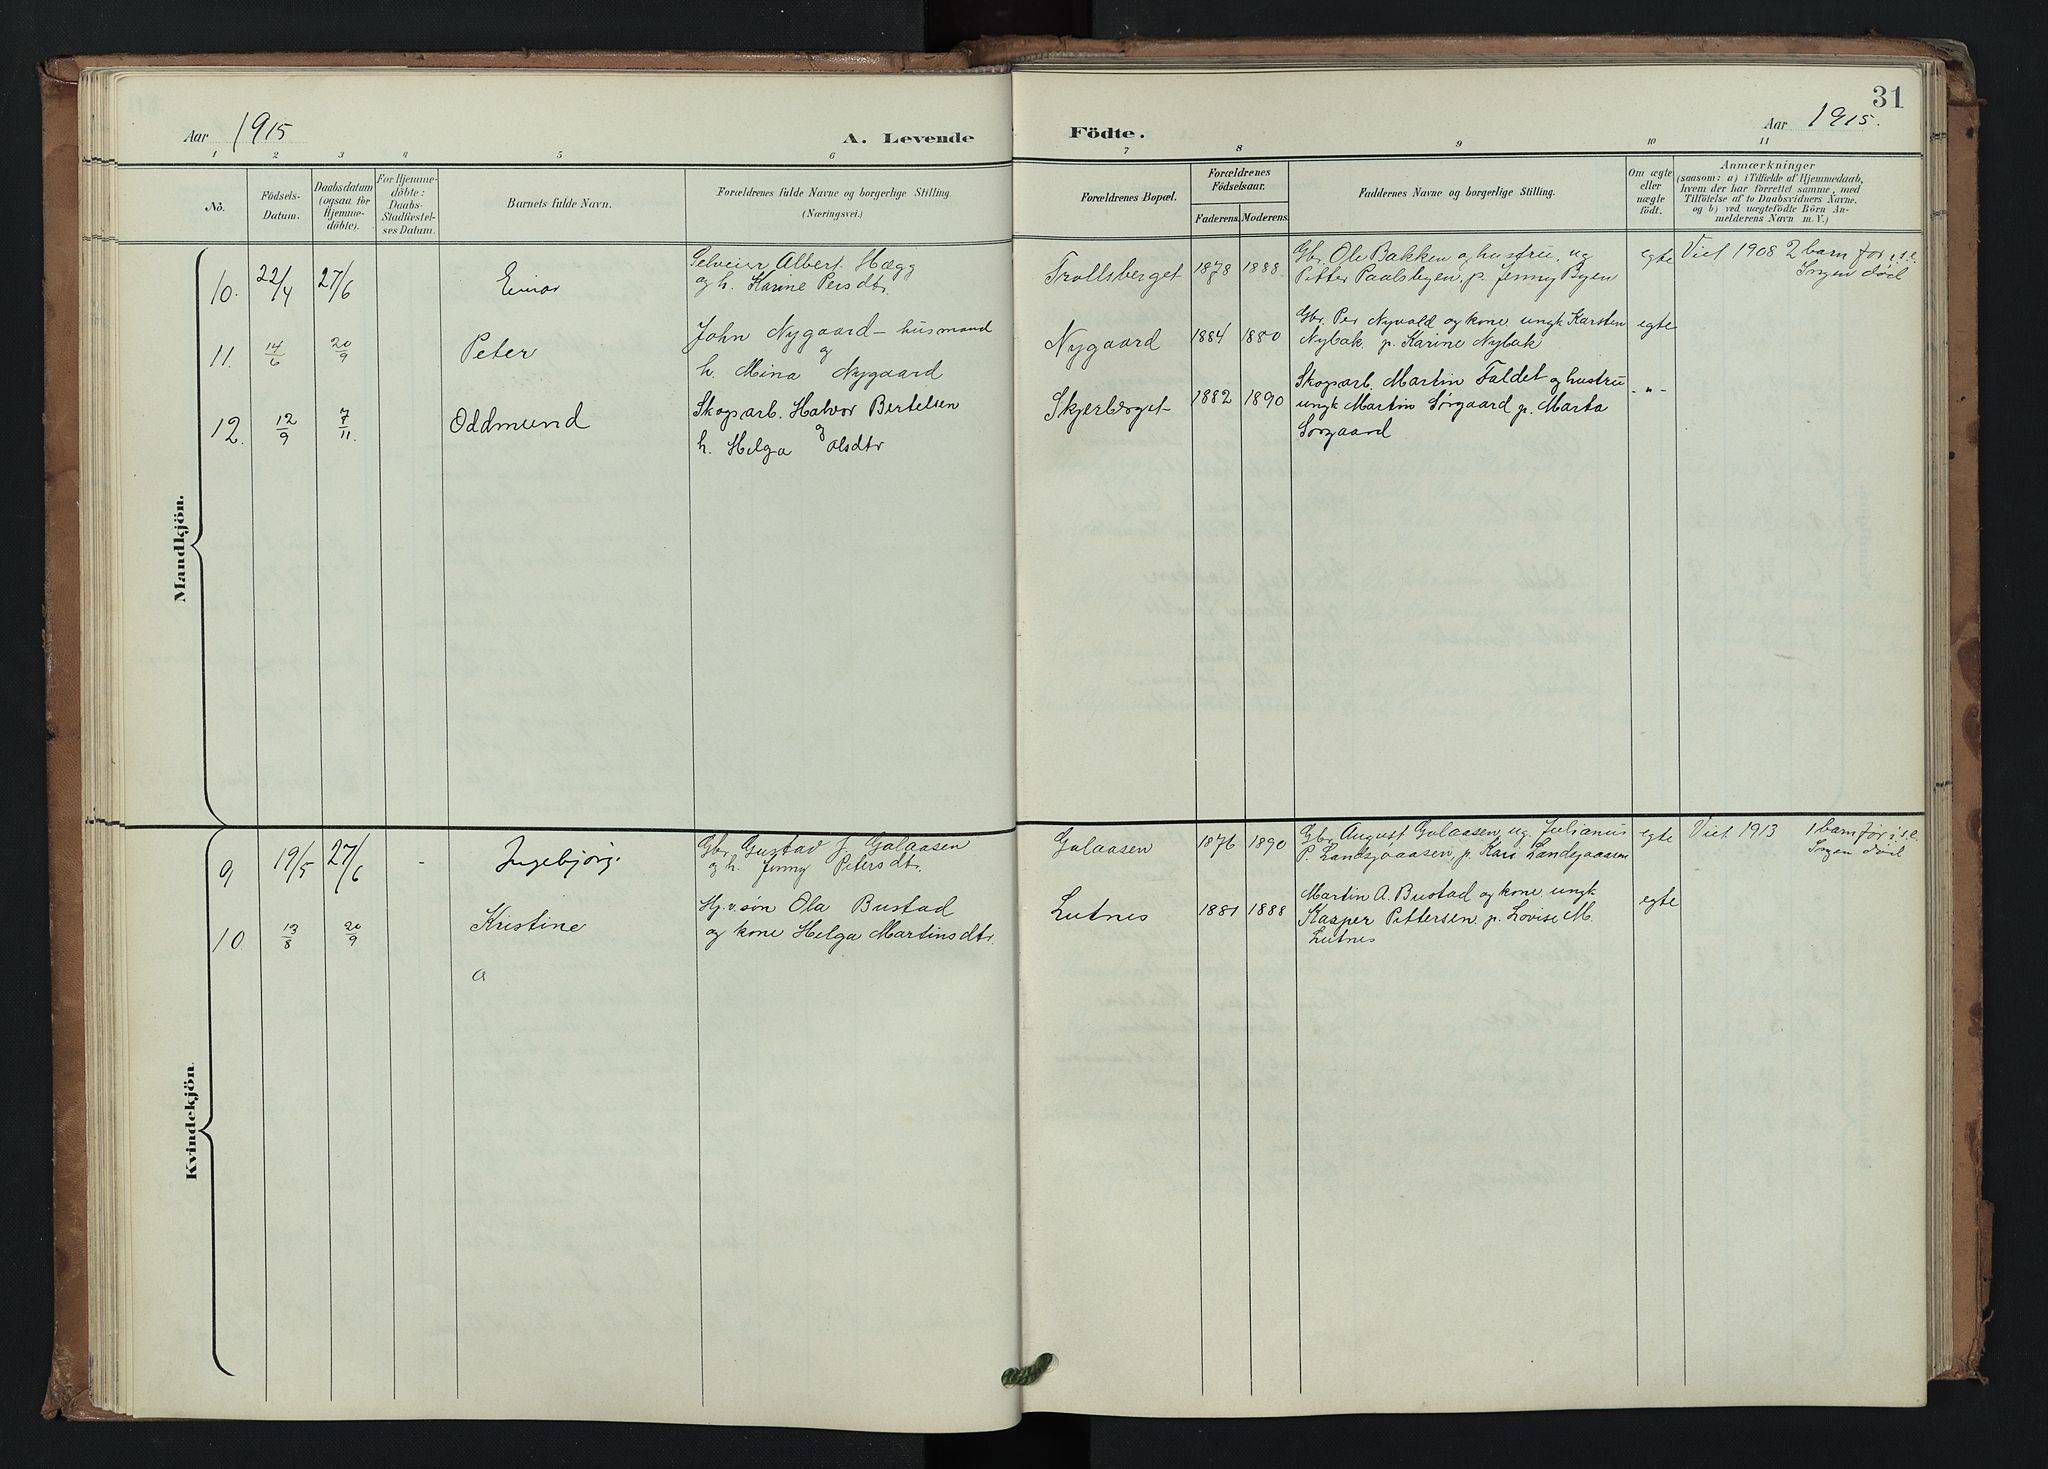 31
Aar 1915
A. Levende
Födte.
Aar 1915.
1 2 3 4 5 6 7 8 9 10 11
No.
Födsels-
Datum.
Daabsdatum
(ogsaa for
Hjemme-
döbte).
For Hjemme-
döbte:
Daabs-
Stadfæstel-
ses Datum.
Barnets fulde Navn.
Forældrenes fulde Navne og borgerlige Stilling.
(Næringsvei.)
Forældrenes Bopæl.
Forældrenes
Födselsaar.
Faderens. Moderens.
Faddernes Navne og borgerlige Stilling.
Om ægte
eller
uægte
födt.
Anmærkninger
(saasom: a) i Tilfælde af Hjemmedaab,
hvem der har forrettet samme, med
Tilföielse af to Daabsvidners Navne.
og b) ved uægtefödte Börn An-
melderens Navn m. V.)
Mandkjön.
10. 22/4 27/6 Einar
Selveier Albert Hægg
og h. Karine Persdtr.
Trollsberget 1878 1888
Gbr. Ole Bakken og hustru, ug
Pitter Paalsbyen, p. Jenny Byen
egte
Viet 1908 2 barn før i s.e.
Ingen død
11. 14/6 20/9 Peter
John Nygaard - husmand
og
h. Mina Nygaard
Nygaard 1884 1880
Gbr. Per Nyvold og kone ungk Karsten
Nybak p. Karine Nybak
egte
12. 12/9 7/11. Oddmund
Skogsarb. Halvor Bertelsen
og
h. Helga Olsdtr
Skjerberget 1882 1890
Skogsarb. Martin Faldet og hustru
ungk Martin Sørgaard p. Marta
Sørgaard
-"-
Kvindekjön.
9 19/5 27/6 - Ingebjørg.
Gbr Gustav J. Galaasen
og h. Jenny Petersdtr.
Galaasen 1876 1890
Gbr August Galaasen, ug. Julianus
P. Landsjøaasen, p. Kari Landsjøaasen
egte
Viet 1913 1 barn før i s.e.
Ingen død
10. 13/8 20/9 Kristine
Hj.v.søn Ola Bustad
og kone Helga Martinsdtr.
Lutnes 1881 1888
Martin A. Bustad og kone ungk
Kasper Pittersen p. Lovise M.
Lutnes
egte
a